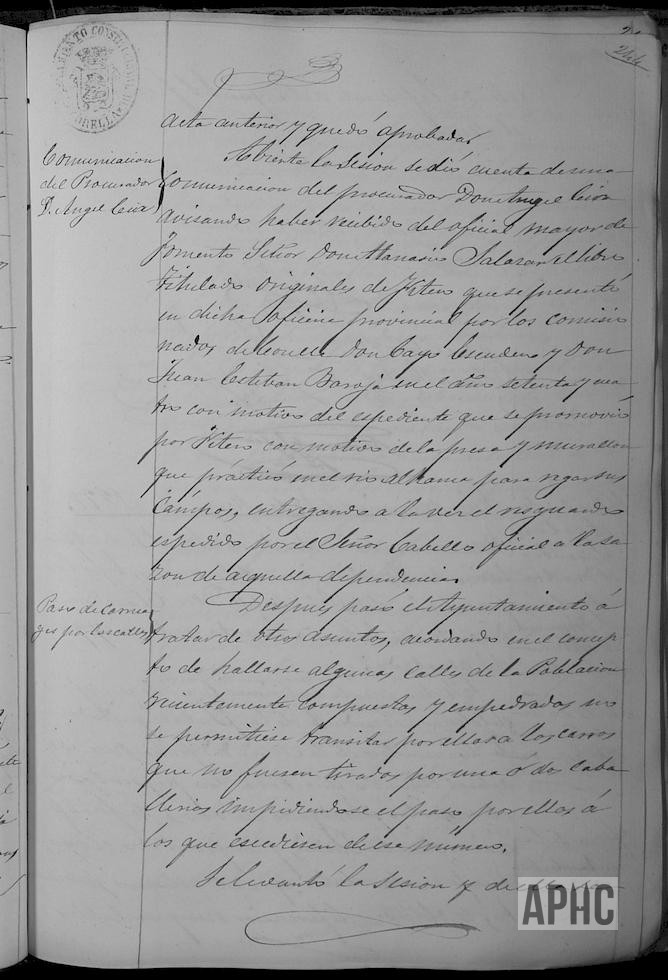 244
AYUNTAMIENTO CONSTITUCIONAL
CORELLA
acta anterior y quedó aprobada.
Comunicacion
del Procurador
D. Angel
Abierta la Sesion se dió cuenta de una
Comunicacion del procurador Don Angel
avisando haber recibido del oficial mayor de
fomento Señor Don Atanasio Salazar el libro
titulado originales de Fitero que se presentó
en dicha oficina provincial por los comisio
nados de Corella Don Cayo Escudero y Don
Juan Esteban Baroja en el año setenta y cua
tro con motivo del espediente que se promovió
por Fitero con motivo de la presa y murallon
que practicó en el rio Alhama para regar sus
Campos, entregando a la vez el resguardo
espedido por el Señor Cabello oficial a la sa
zon de aquella dependencia.
Paso de carrua
ges por las calles
Despues pasó el Ayuntamiento á
tratar de otros asuntos, acordando en el concep
to de hallarse algunas calles de la Poblacion
recientemente compuestas y empedradas no
se permitiese transitar por ellas a los carros
que no fuesen tirados por una ó dos caba
llerias impidiendose el paso por ellas á
los que escediesen de ese número.
Se levantó la Sesion y de
APHC